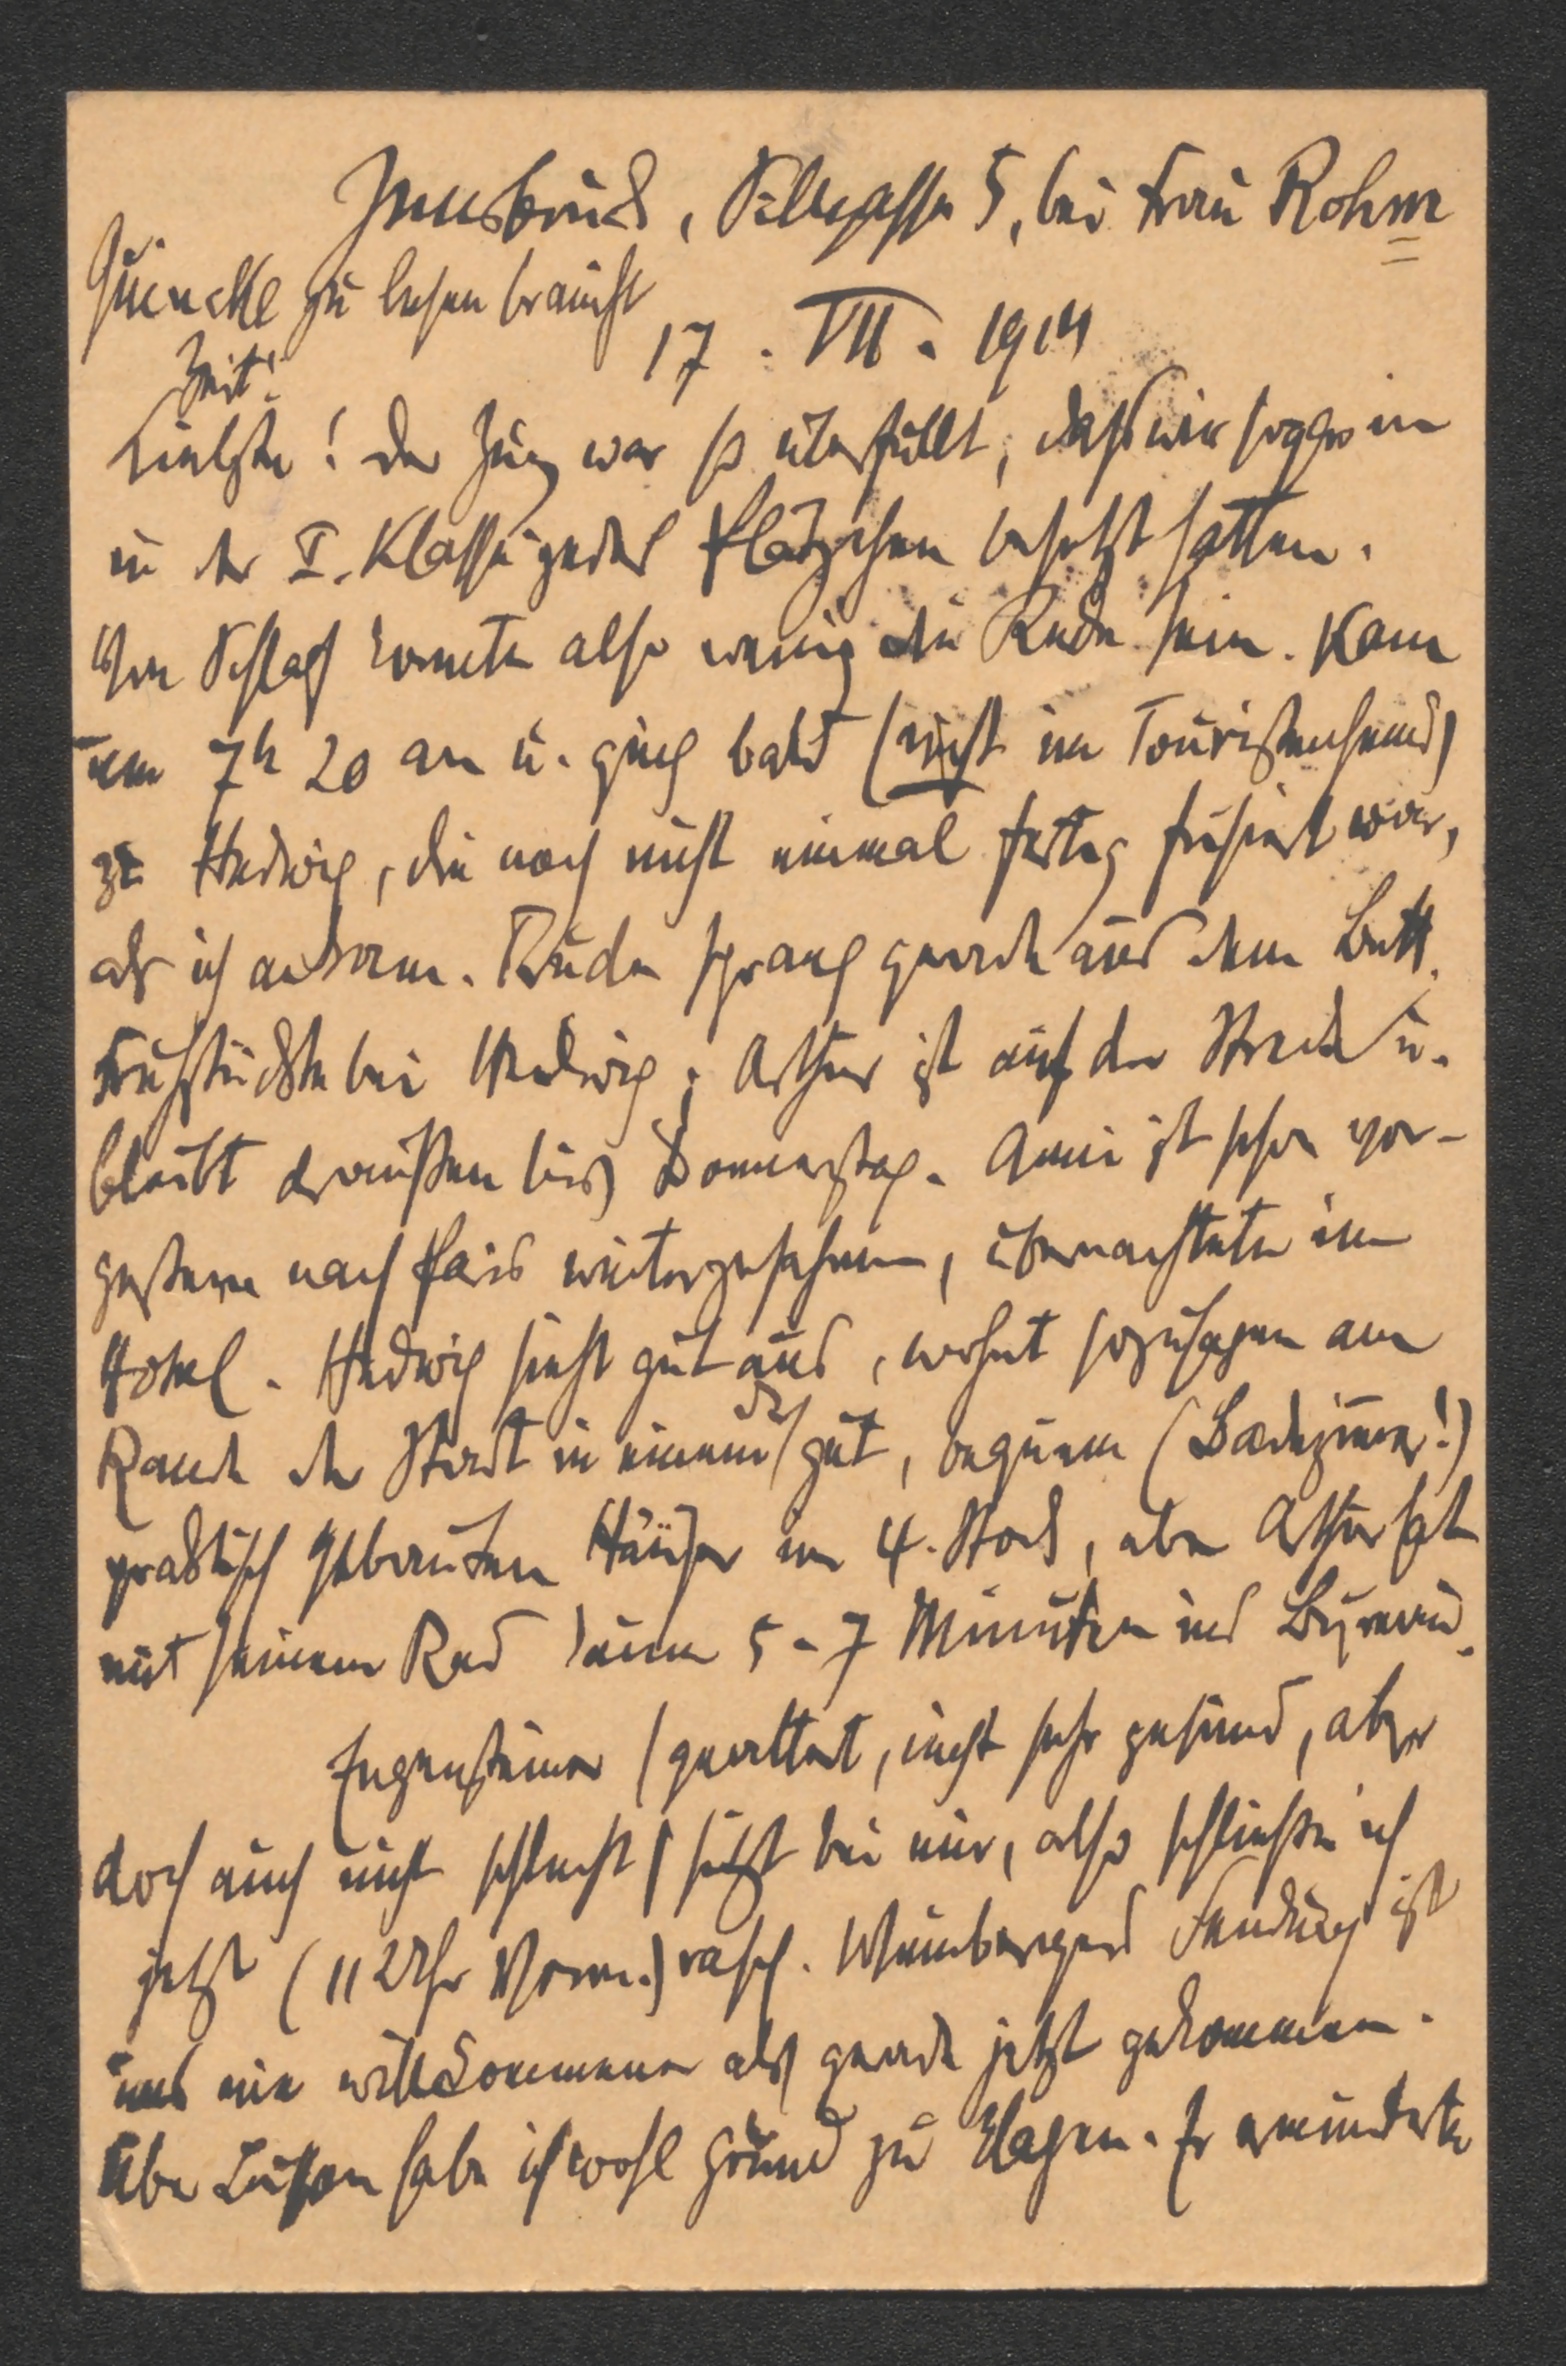 Innsbruck, Sillgasse 5, bei Frau Rohm
Quincke zu lesen braucht
Zeit!
17. VII. 1914
Liebste! Der Zug war so überfüllt, daß wir sogar
in der I. Klasse jedes Plätzchen besetzt hatten.
Von Schlaf konnte also wenig die Rede sein. Kam
um 7h 20 an u. ging bald (nicht im Touristenhemd)
zu Hedwig, die noch nicht einmal fertig frisiert war,
als ich ankam. Rudi sprang gerade aus dem Bett.
Frühstückte bei Hedwig; Arthur ist auf der Strecke u.
bleibt draußen bis Donnerstag. Anni ist schon vor-
gestern nach weitergefahren, übernachtete im
Hotel. Hedwig sieht gut aus, wohnt sozusagen am
Rande der Stadt in einem gut, bequem (Badezimmer!)
praktisch gebauten Hause im 4. Stock, aber Arthur hat
mit seinem Rad kaum 5-7 Minuten ins Bureau.
(gealtert, nicht sehr gesund, aber
doch auch nicht schlecht) sitzt bei mir, also schließe ich
jetzt (11 Uhr Vorm.) rasch. Weinbergers Sendung ist
uns nie willkommener als gerade jetzt gekommen.
Über habe ich wohl Grund zu klagen. Er